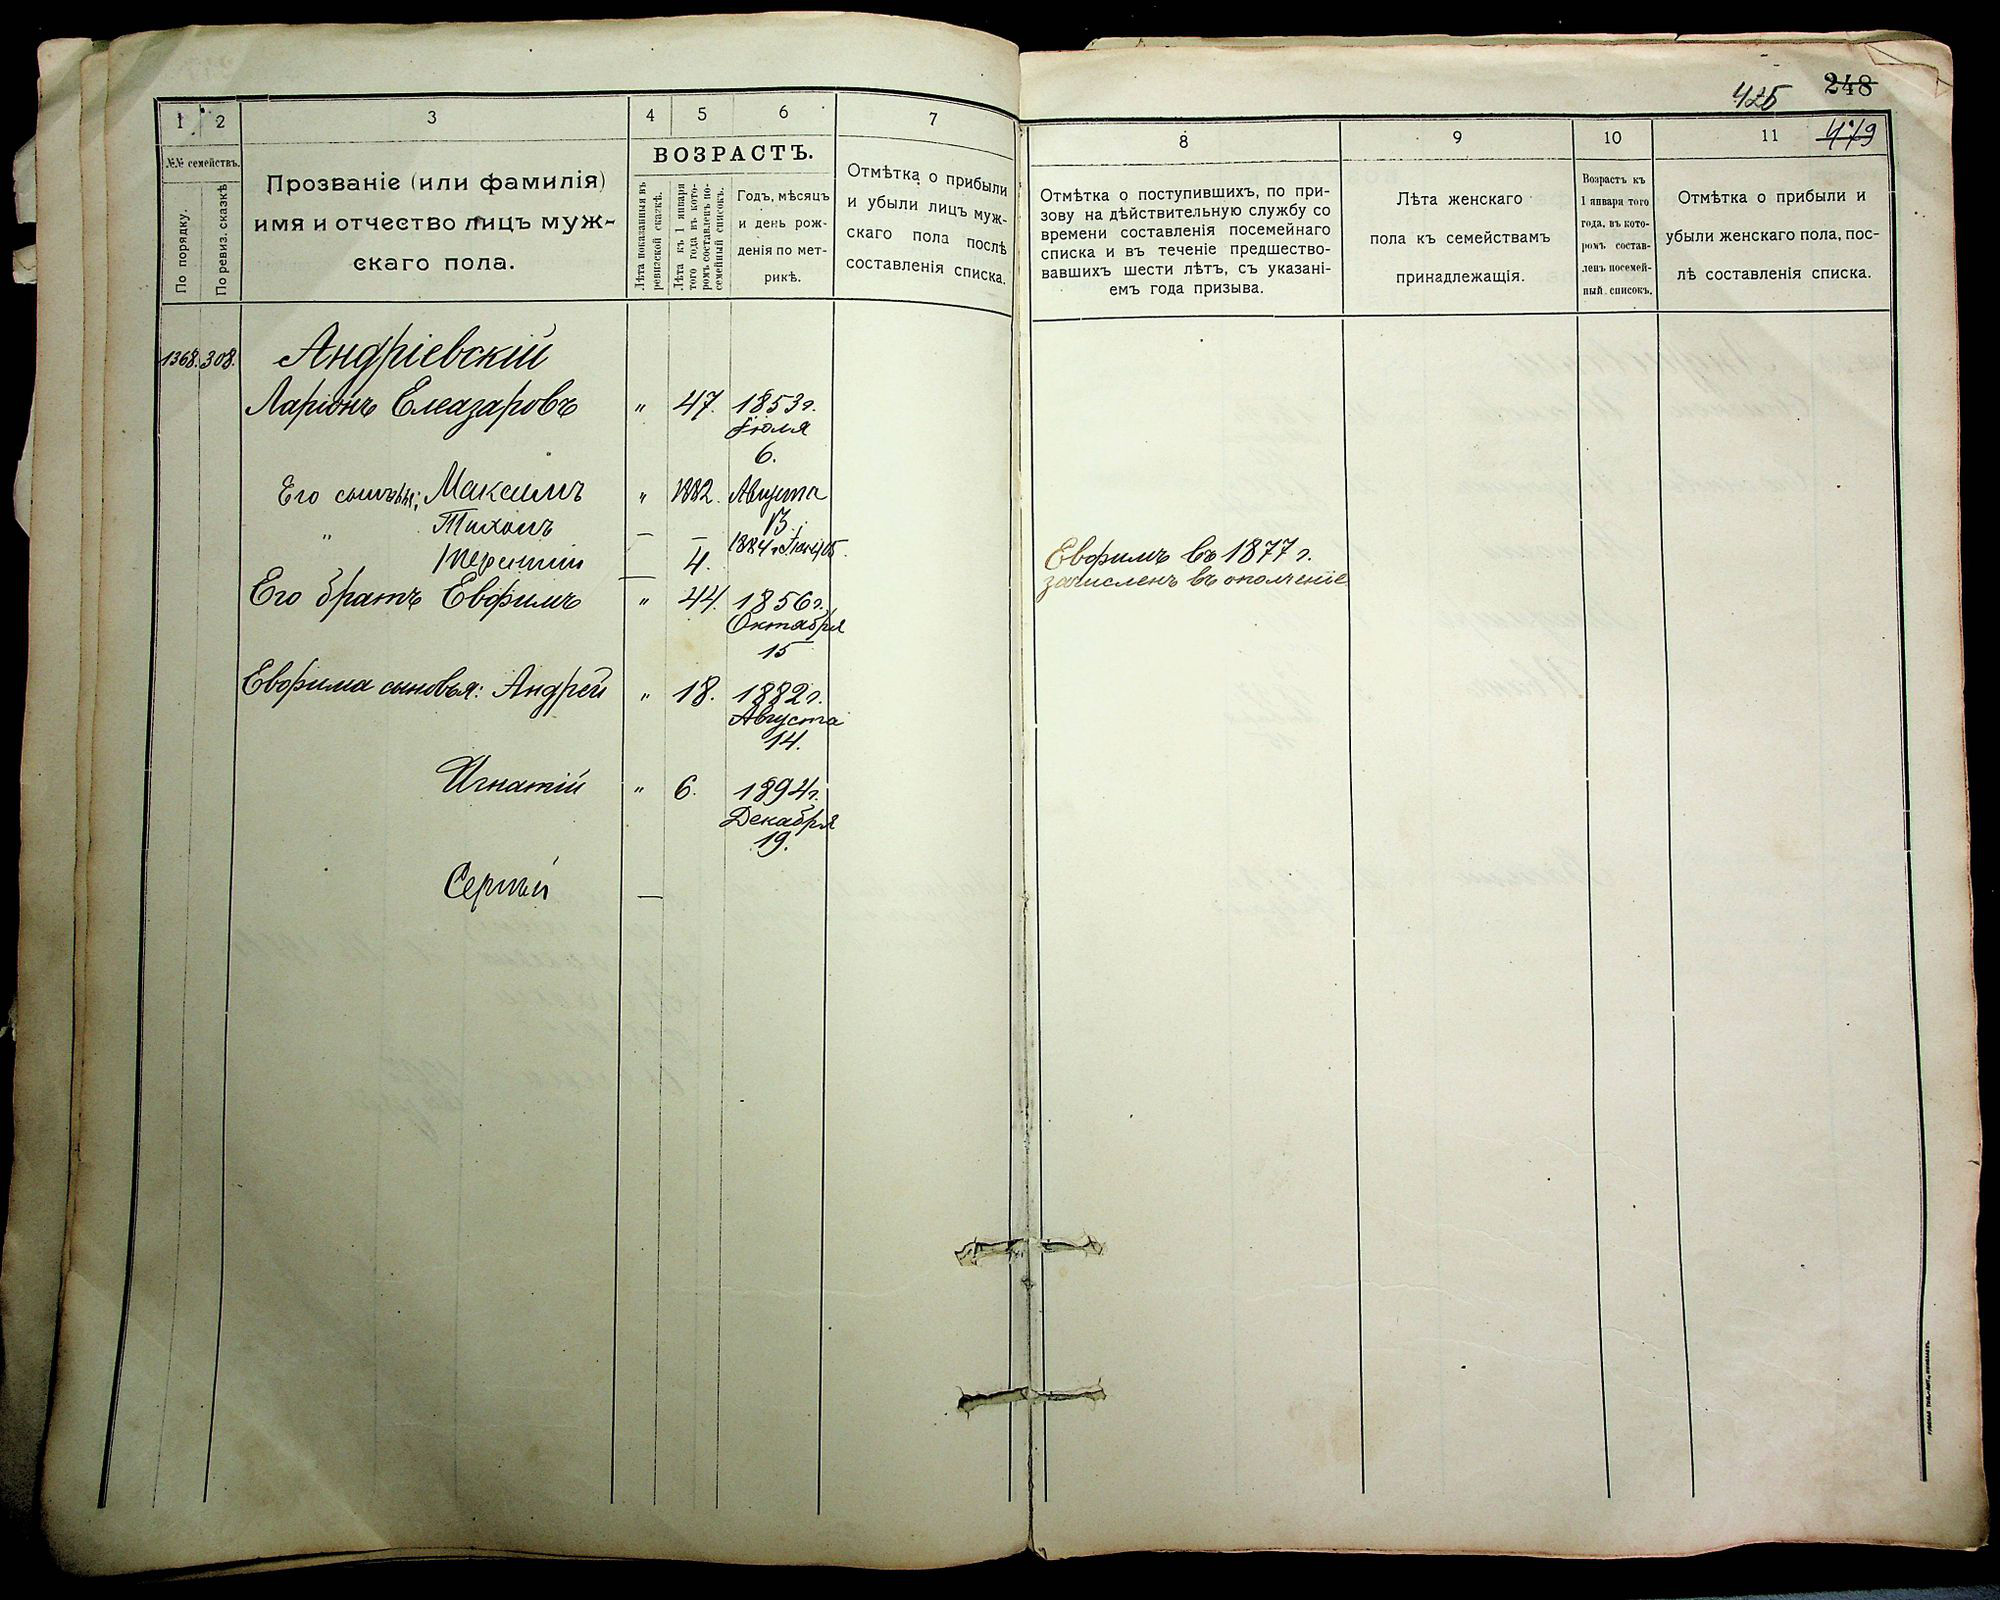 425 248
479
1 2 3 4 5 6 7
№№ семействъ.
По порядку.
По ревиз. сказкѣ
Прозваніе (или фамилія)
имя и отчество лицъ муж-
скаго пола.
ВОЗРАСТЪ.
Лѣта показанныя въ
ревизской сказкѣ.
Лѣта къ 1 января
того года въ кото-
ромъ составленъ по-
семейный списокъ.
Годъ, мѣсяцъ
и день рож-
денія по мет-
рикѣ.
Отмѣтка о прибыли
и убыли лицъ муж-
скаго пола послѣ
составленія списка.
8 9 10 11
Отмѣтка о поступившихъ, по при-
зову на дѣйствительную службу со
времени составленія посемейнаго
списка и въ теченіе предшество-
вавшихъ шести лѣтъ, съ указані-
емъ года призыва.
Лѣта женскаго
пола къ семействамъ
принадлежащія.
Возрастъ къ
1 января того
года, въ кото-
ромъ состав-
ленъ посемей-
ный списокъ.
Отмѣтка о прибыли и
убыли женскаго пола, пос-
лѣ составленія списка.
1368. 308. Андріевскій
Ларіонъ Елеазаровъ " 47. 1853 г.
Іюля
6.
Его сыновья: Максимъ " 1882. Августа
13.
" Тихонъ — — 1884 г.
Терентій — 4.
Его братъ Евфимъ " 44. 1856 г.
Октября
15
Евфима сыновья: Андрей " 18. 1882 г.
Августа
14.
Игнатій " 6. 1894 г.
Декабря
19.
Сергѣй —
Евфимъ въ 1877 г.
зачисленъ въ ополченіе